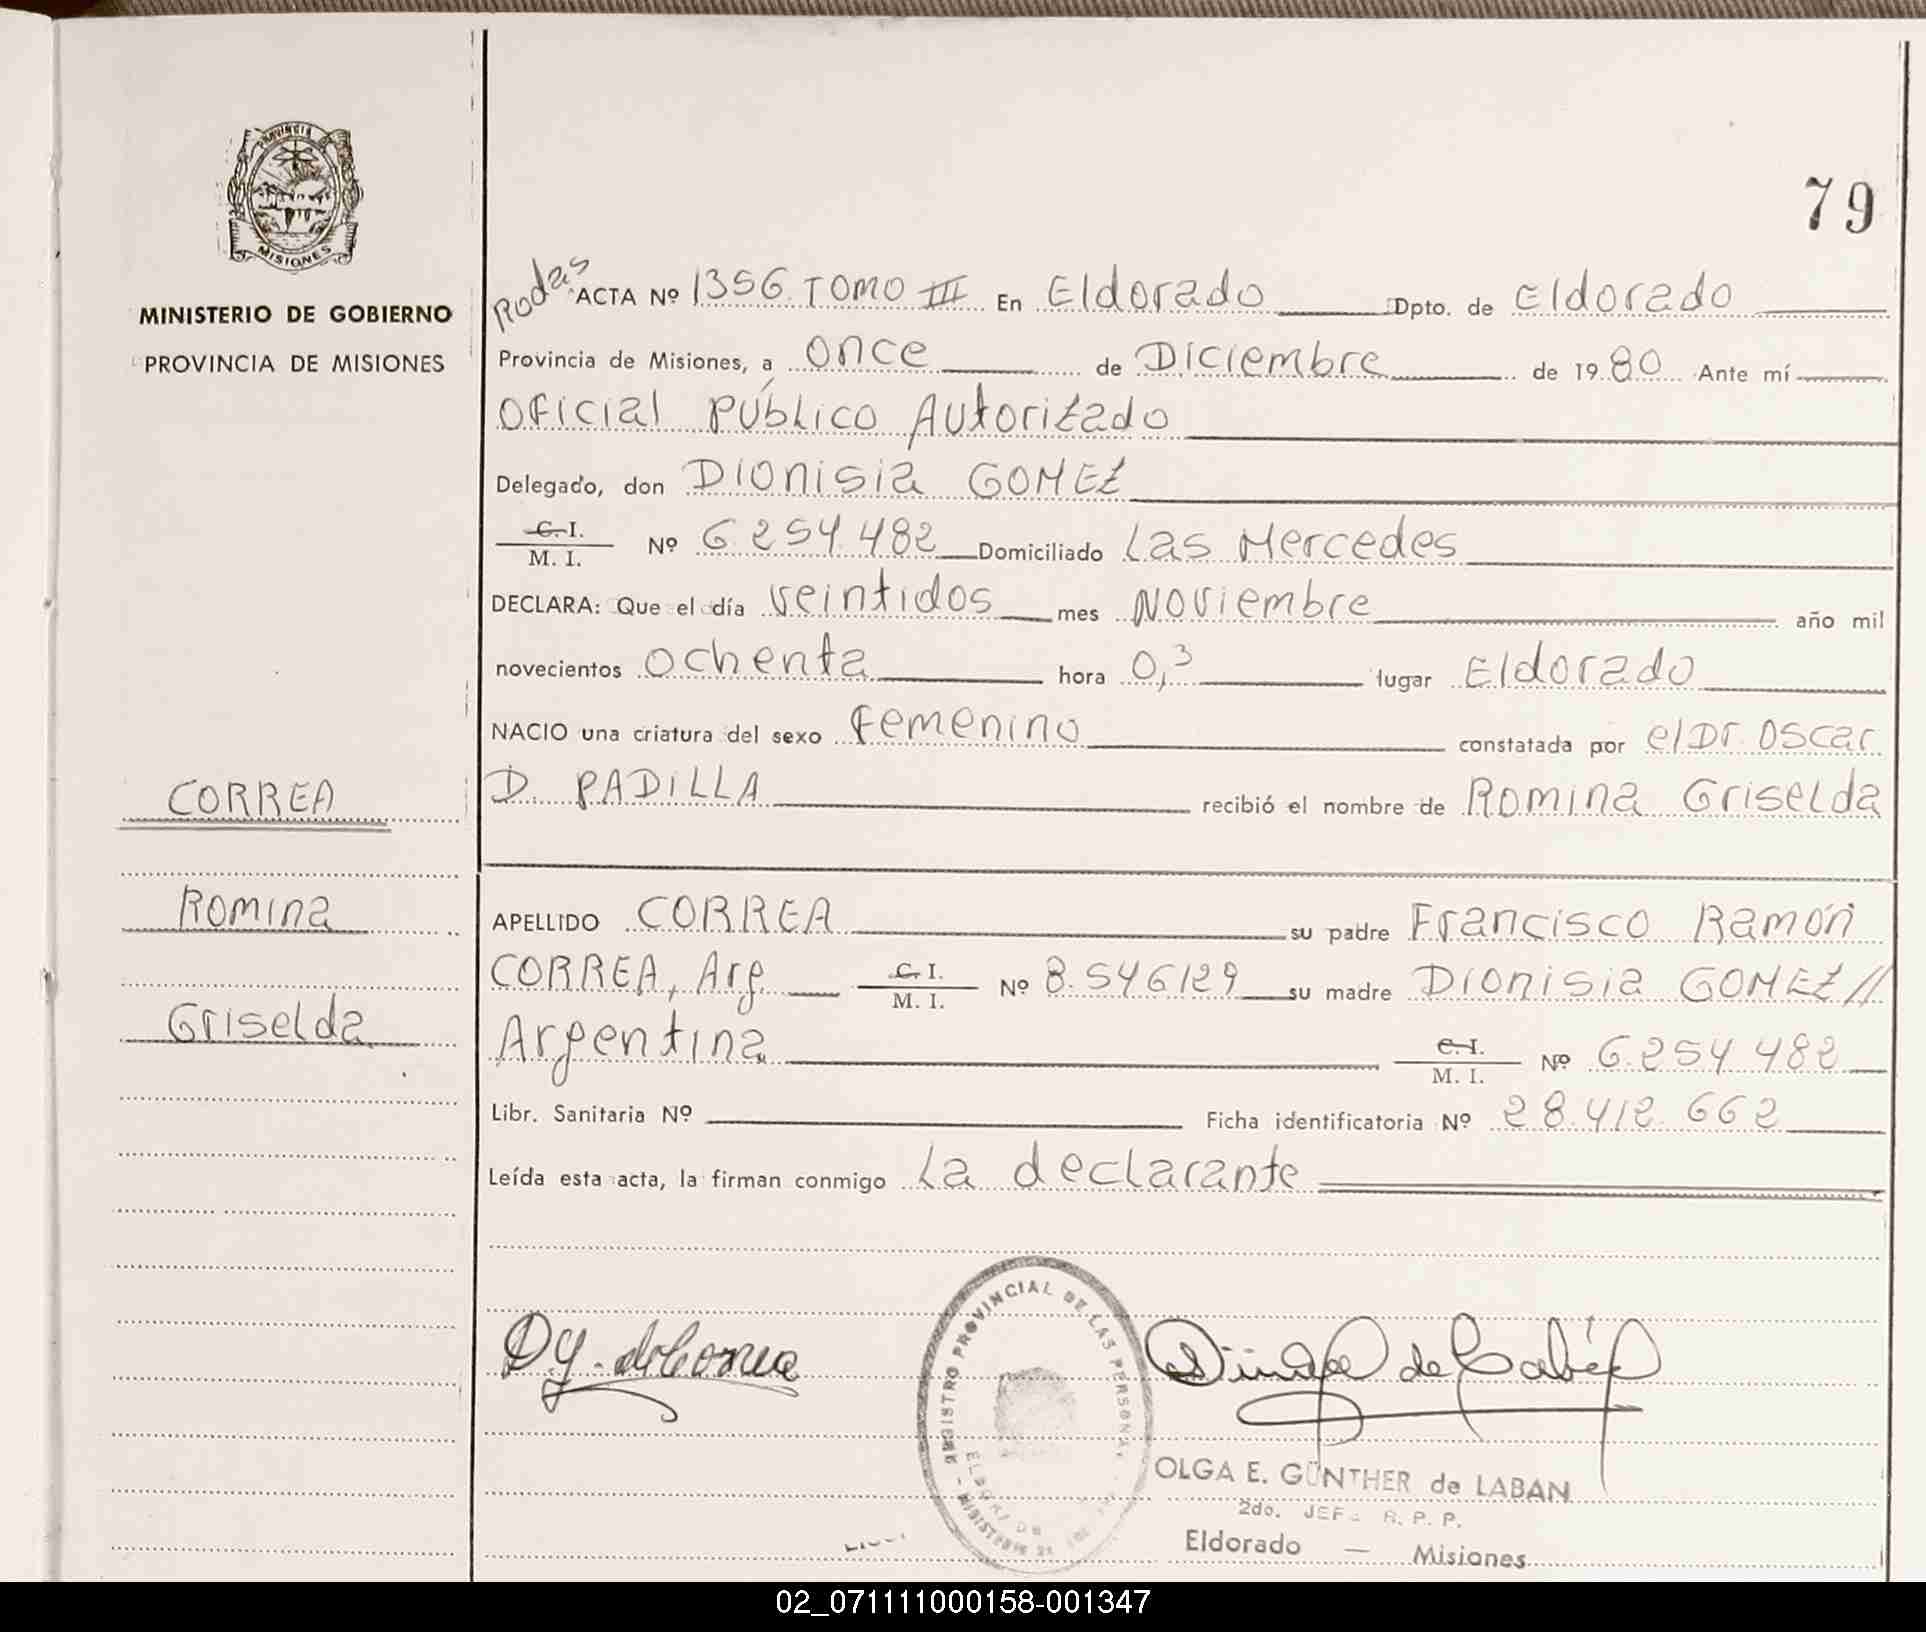 PROVINCIA
MISIONES
MINISTERIO DE GOBIERNO
PROVINCIA DE MISIONES
CORREA
Romina
Griselda
79
Rodas
ACTA Nº 1356 TOMO III En Eldorado Dpto. de Eldorado
Provincia de Misiones, a once de Diciembre de 1980 Ante mí
Oficial Público Autorizado
Delegado, don Dionisia GOMEZ
C. I.
M. I. Nº 6.254.482 Domiciliado Las Mercedes
DECLARA: Que el día veintidos mes Noviembre año mil
novecientos ochenta hora 0,3 lugar Eldorado
NACIO una criatura del sexo Femenino constatada por el Dr. Oscar
D. PADILLA recibió el nombre de Romina Griselda
APELLIDO CORREA su padre Francisco Ramón
CORREA, Arg. C. I.
M. I. Nº 8.546129 su madre Dionisia GOMEZ//
Argentina C. I.
M. I. Nº 6.254.482
Libr. Sanitaria Nº Ficha identificatoria Nº 28.412.662
Leída esta acta, la firman conmigo La declarante
REGISTRO PROVINCIAL DE LAS PERSONAS
OLGA E. GÜNTHER de LABAN
2do. JEFE R. P. P.
Eldorado — Misiones
02_071111000158-001347